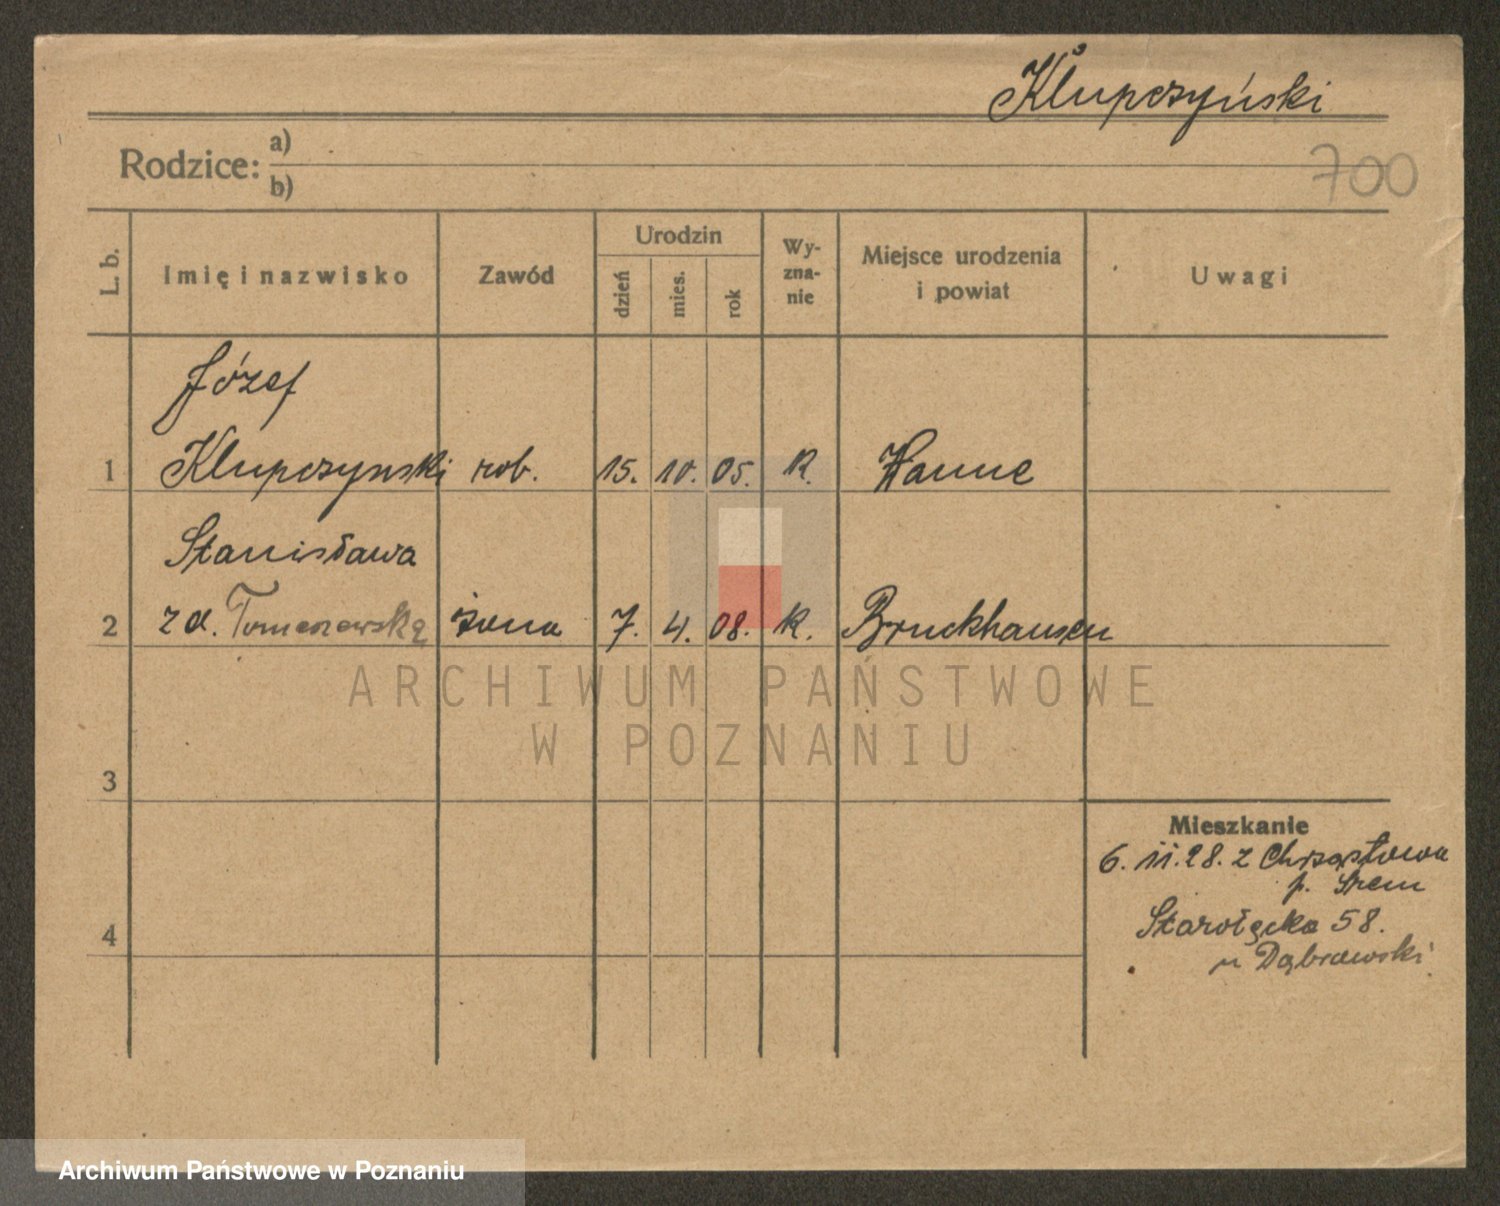 Klupczyński
700
Rodzice: a)
b)
L. b.
Imię i nazwisko
Zawód
Urodzin
dzień
mies.
rok
Wy-
zna-
nie
Miejsce urodzenia
i powiat
Uwagi
Józef
1 Klupczynski rob. 15. 10. 05. K. Wanne
Stanisława
2 z d. Tomaszewską żona 7. 4. 08. K. Bruckhausen
ARCHIWUM PAŃSTWOWE
W POZNANIU
3
Mieszkanie
6. 11. 28. z Chrząstowa
p. Śrem
4
Starołęcka 58.
u Dąbrowski
Archiwum Państwowe w Poznaniu